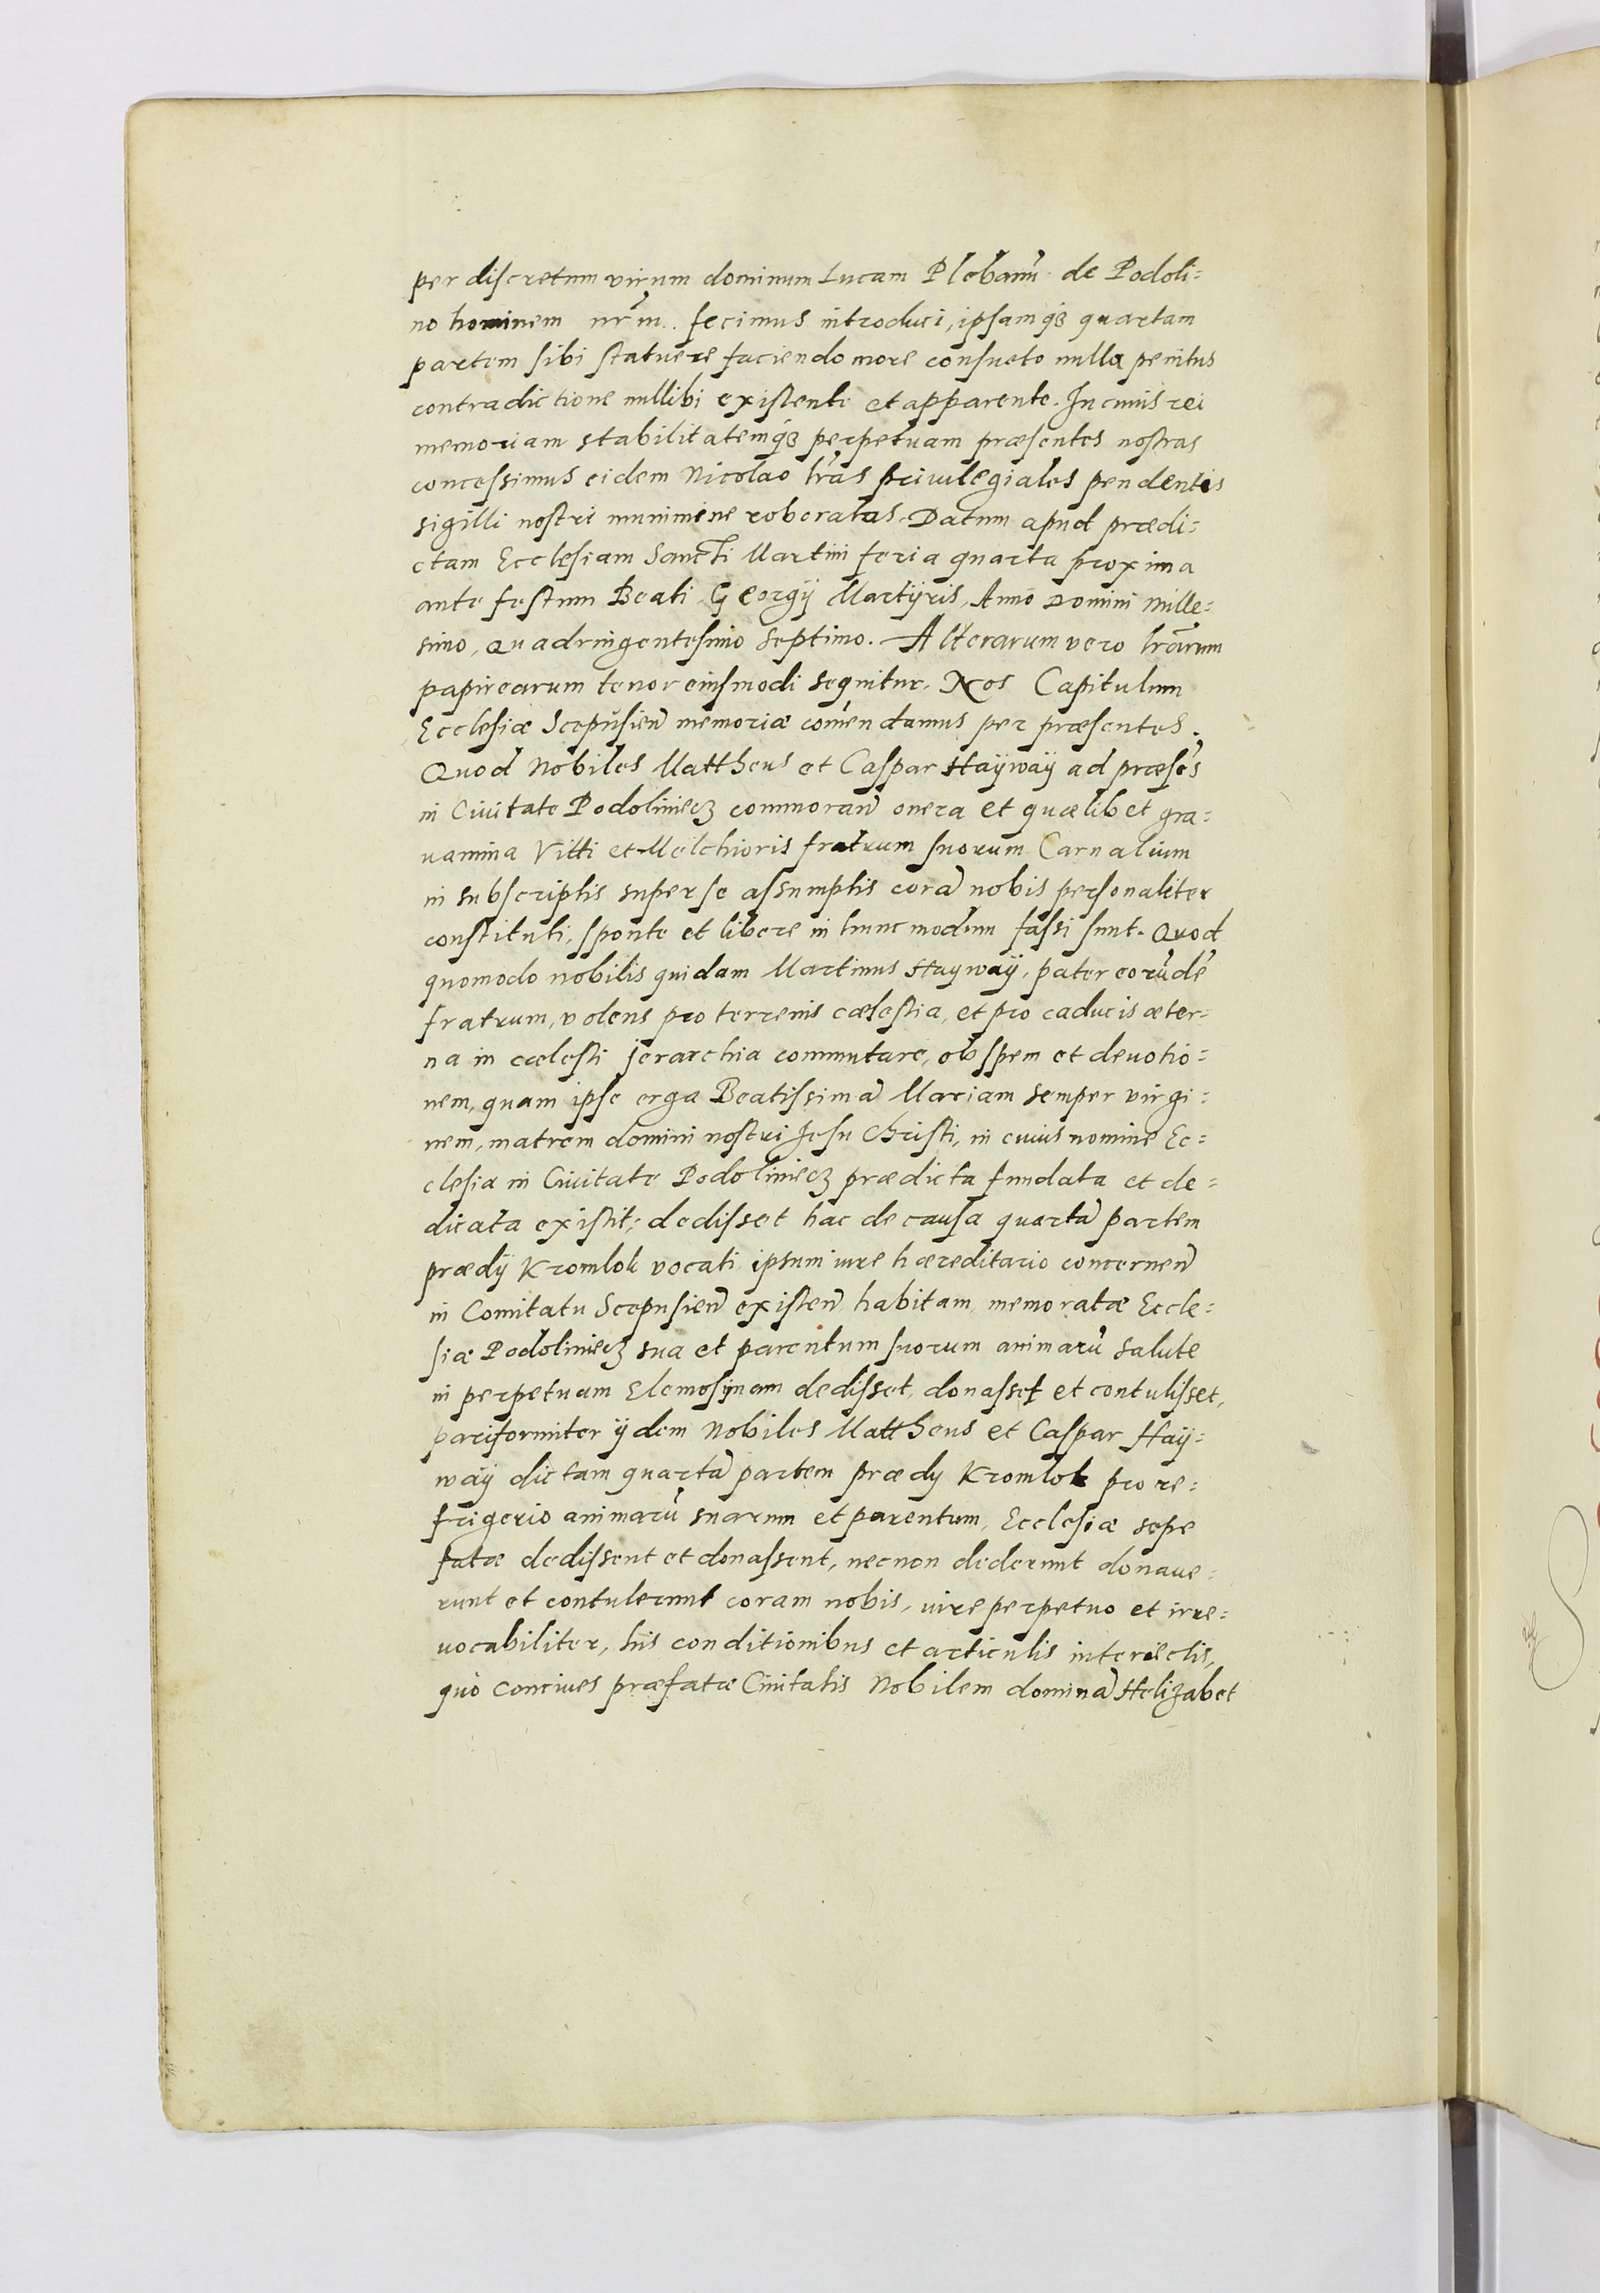 per discretum virum dominum Lucam Plebanũ de Podoli=
no hominem nr̃m. fecimus introduci, ipsamq́ꝫ quartam
partem sibi statuere faciendo more consueto nulla penitus
contradictione nullibi existente et apparente. In cuius rei
memoriam stabilitatemq́ꝫ perpetuam præsentes nostras
concessimus eidem Nicolao lr̃as priuilegiales pendentis
sigilli nostri munimine roboratas. Datum apud prædi=
ctam Ecclesiam Sancti Martini feria quarta proxima
ante festum Beati Georgÿ Martÿris, Anno Domini Mille=
simo, Quadringentesimo Septimo. Alterarum vero lr̃arum
papirearum tenor eiusmodi sequitur. Nos Capitulum
Ecclesiæ Scepusieñ memoriæ com̃endamus per præsentes.
Quod Nobiles Mattheus et Caspar Haÿwaÿ ad præsẽs
in Ciuitate Podoliniecꝫ commorañ onera et quælibet gra=
uamina Vitti et Melchioris fratrum suorum Carnalium
in subscriptis super se assumptis corã nobis personaliter
constituti, sponte et libere in hunc modum fassi sunt. Quod
quomodo nobilis quidam Martinus Haywaÿ, pater eorũdẽ
fratrum, volens pro terrenis cælestia, et pro caducis æter=
na in cælesti jerarchia commutare, ob spem et deuotio=
nem, quam ipse erga Beatissimã Mariam semper virgi=
nem, matrem domini nostri Jesu Christi, in cuius nomine Ec=
clesia in Ciuitate Podoliniecꝫ prædicta fundata et de=
dicata existit; dedisset hac de causa quartã partem
prædÿ Kromlok vocati ipsum iure hæreditario concerneñ
in Comitatu Scepusieñ existeñ habitam memoratæ Eccle=
siæ Podoliniecꝫ sua et parentum suorum animarũ salute
in perpetuam Elemosÿnam dedisset, donasset et contulisset,
pariformiter ÿdem Nobiles Mattheus et Caspar Haÿ=
waÿ dictam quartã partem prædÿ Kromlok pro re=
frigerio animarũ suarum et parentum, Ecclesiæ sepe
fatæ dedissent et donassent, necnon dederunt donaue=
runt et contulerunt coram nobis, iure perpetuo et irre=
uocabiliter, his conditionibus et articulis interiectis,
quò conciues præfatæ Ciuitatis Nobilem dominã Helizabet